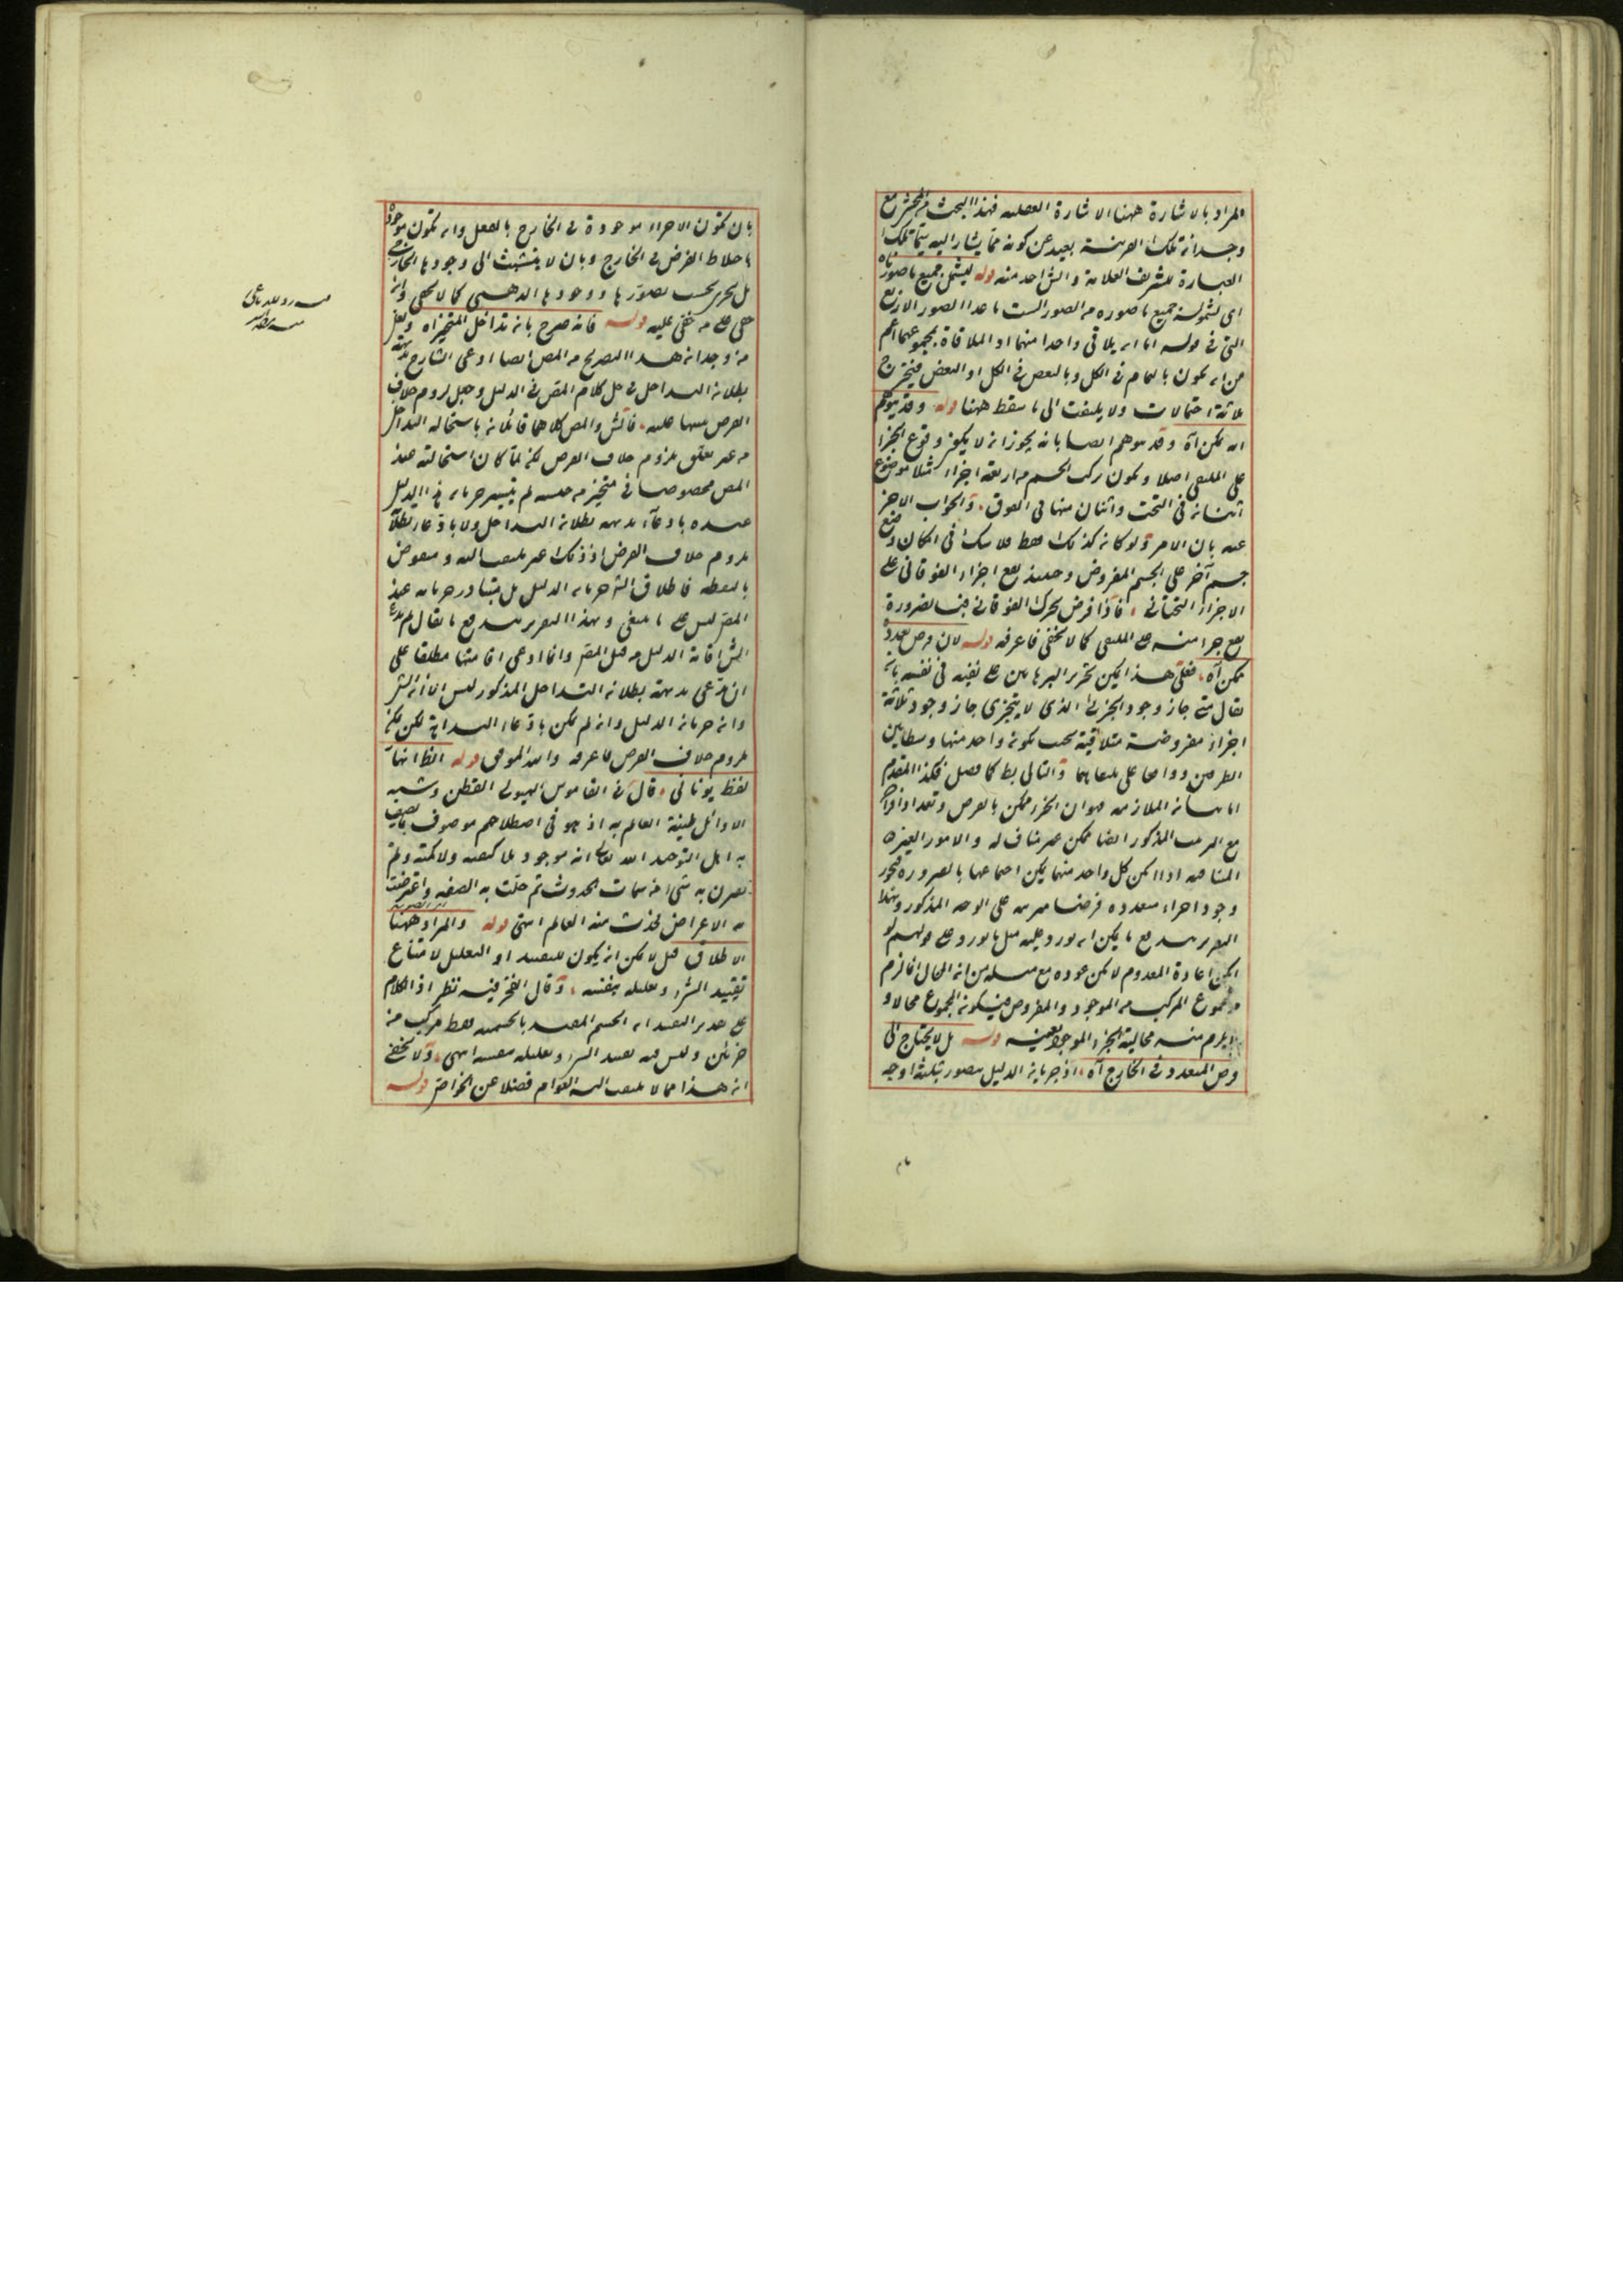 المراد بالاشارة ههنا الاشارة العقلية فهذا البحث من المحشى مع
وجدانه تلك القرينة بعيد عن كونه مما يشار اليه بتلك
العبارة للشريف العلامة والش اخذ منه قوله ليشمل جميع ما صوره
اى لشموله جميع ما صوره من الصور الست ما عدا الصور الاربع
التى فى قوله اما ان يلاقى واحدا منهما او الملاقاة بمجموعهما اعم
من ان يكون بالتمام فى الكل وبالبعض فى الكل او البعض فيخرج
ثلاثة احتمالات ولا يلتفت الى ما سقط ههنا قوله وقد يتوهم
انه يمكن آه وقد يتوهم ايضا بانه يجوز ان لا يكون وقوع الجزء
على الملتقى اصلا ويكون تركب الجسم من اربعة اجزاء مثلا موضوع
اثنان فى التحت واثنان منها فى الفوق والجواب الاخر
عنه بان الامر ولو كان كذلك فقط فلا شك فى امكان وضع
جسم آخر على الجسم المفروض وحينئذ يقع اجزاء الفوقانى على
الاجزاء التحتانى فاذا فرض تحرك الفوقانى فبالضرورة
يقع جزء منه على الملتقى كما لا يخفى فاعرفه قوله لان فرض تعدده
ممكن آه فعلى هذا يمكن تحرير البرهانين على نفيه فى نفسه بان
يقال متى جاز وجود الجزء الذى لا يتجزى جاز وجود ثلاثة
اجزاء مفروضة متلاقية بحيث يكون واحد منها وسطا بين
الطرفين وواقعا على ملتقاهما والتالى بط كما فصل فكذا المقدم
اما بيان الملازمة فهو ان الجزء ممكن بالفرض وتعدد افراده
مع الترتيب المذكور ايضا ممكن غير مناف له والامور الغير
المتنافية اذا امكن كل واحد منهما يمكن اجتماعها بالضرورة فيجوز
وجود اجزاء متعددة فرضنا مرتبة على الوجه المذكور وبهذا
التقرير يندفع ما يمكن ان يورد عليه مثل ما يورد على قولهم لو
امكن اعادة المعدوم لامكن عوده مع مثله من ان المحال انما لزم
من مجموع المركب من الموجود والمفروض فيكون المجموع محالا و
لا يلزم منه محالية الجزء الموجود بعينه قوله بل لا يحتاج الى
فرض المتعدد فى الخارج آه اذ جريان الدليل يتصور بثلثة اوجه
بان تكون الاجزاء موجودة فى الخارج بالفعل وان تكون موجودة
باختلاط الفرض فى الخارج وبان لا يتشبث الى وجودها الخارجى
بل يجرى بحسب تصورها ووجودها الذهنى كما لا يخفى وان
خفى على من خفى عليه قوله فانه صرح بان تداخل المتحيزاه ولعل
من وجدانه هذا التصريح من المص ايضا ادعى الشارح بديهة
بطلان التداخل فى حل كلام المص فى الدليل وجعل لزوم خلاف
الفرض تنبيها عليه فالش والمص كلاهما قائلان باستحالة التداخل
من غير تعلق بلزوم خلاف الفرض لكن لما كان استحالته عند
المص مخصوصا فى متحيز من جنسه لم يتيسر جريان هذا الدليل
عنده بادعاء بديهة بطلان التداخل ولا بادعاء بطلان
لزوم خلاف الفرض اذ ذلك غير ملتفت اليه ومنعوض
بالنقطة فاطلاق الش جريان الدليل بل يتبادر جريانه عند
المص ليس على ما ينبغى وبهذا التقرير يندفع ما يقال لم يدع
الش اقامة الدليل من قبل المص وانما ادعى اقامتها مطلقا على
ان مدعى بديهة بطلان التداخل المذكور ليس الا الش
وان جريان الدليل وان لم يكن بادعاء البداهة لكن يمكن
بلزوم خلاف الفرض فاعرفه والله الموفق قوله الظ انها
لفظ يونانى قال فى القاموس الهيولى القطن وشبه
الاوائل طينة العالم به اذ هو فى اصطلاحهم موصوف بما يصف
به اهل التوحيد الله تعالى انه موجود بلا كيفية ولا كمية ولم
يقترن به شئ من سمات الحدوث ثم حلت به الصفة واعترضت
به الاعراض فحدث منه العالم انتهى قوله والمراد ههنا
الاطلاق قيل لا يمكن ان يكون للتقييد او التعليل لامتناع
تقييد الشئ وتعليله بنفسه وقال الفخر فيه نظر اذ الكلام
على تقدير التقييد ان الجسم المقيد بالجسمية فقط مركب من
جزئين وليس فيه تقييد الشئ وتعليله بنفسه انتهى ولا يخفى
ان هذا مما لا يلتفت اليه العوام فضلا عن الخواص قوله